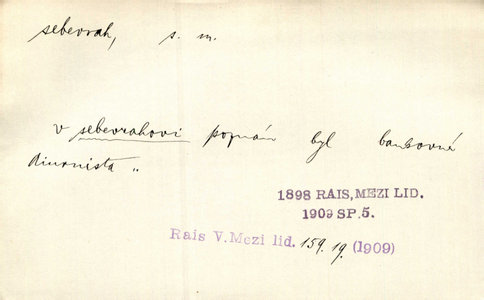 sebevrah, s. m.
v sebevrahovi poznán byl bankovní
diurnista „
1898 RAIS, MEZI LID.
1909 SP. 5.
Rais V. Mezi lid. 159. 19. (1909)